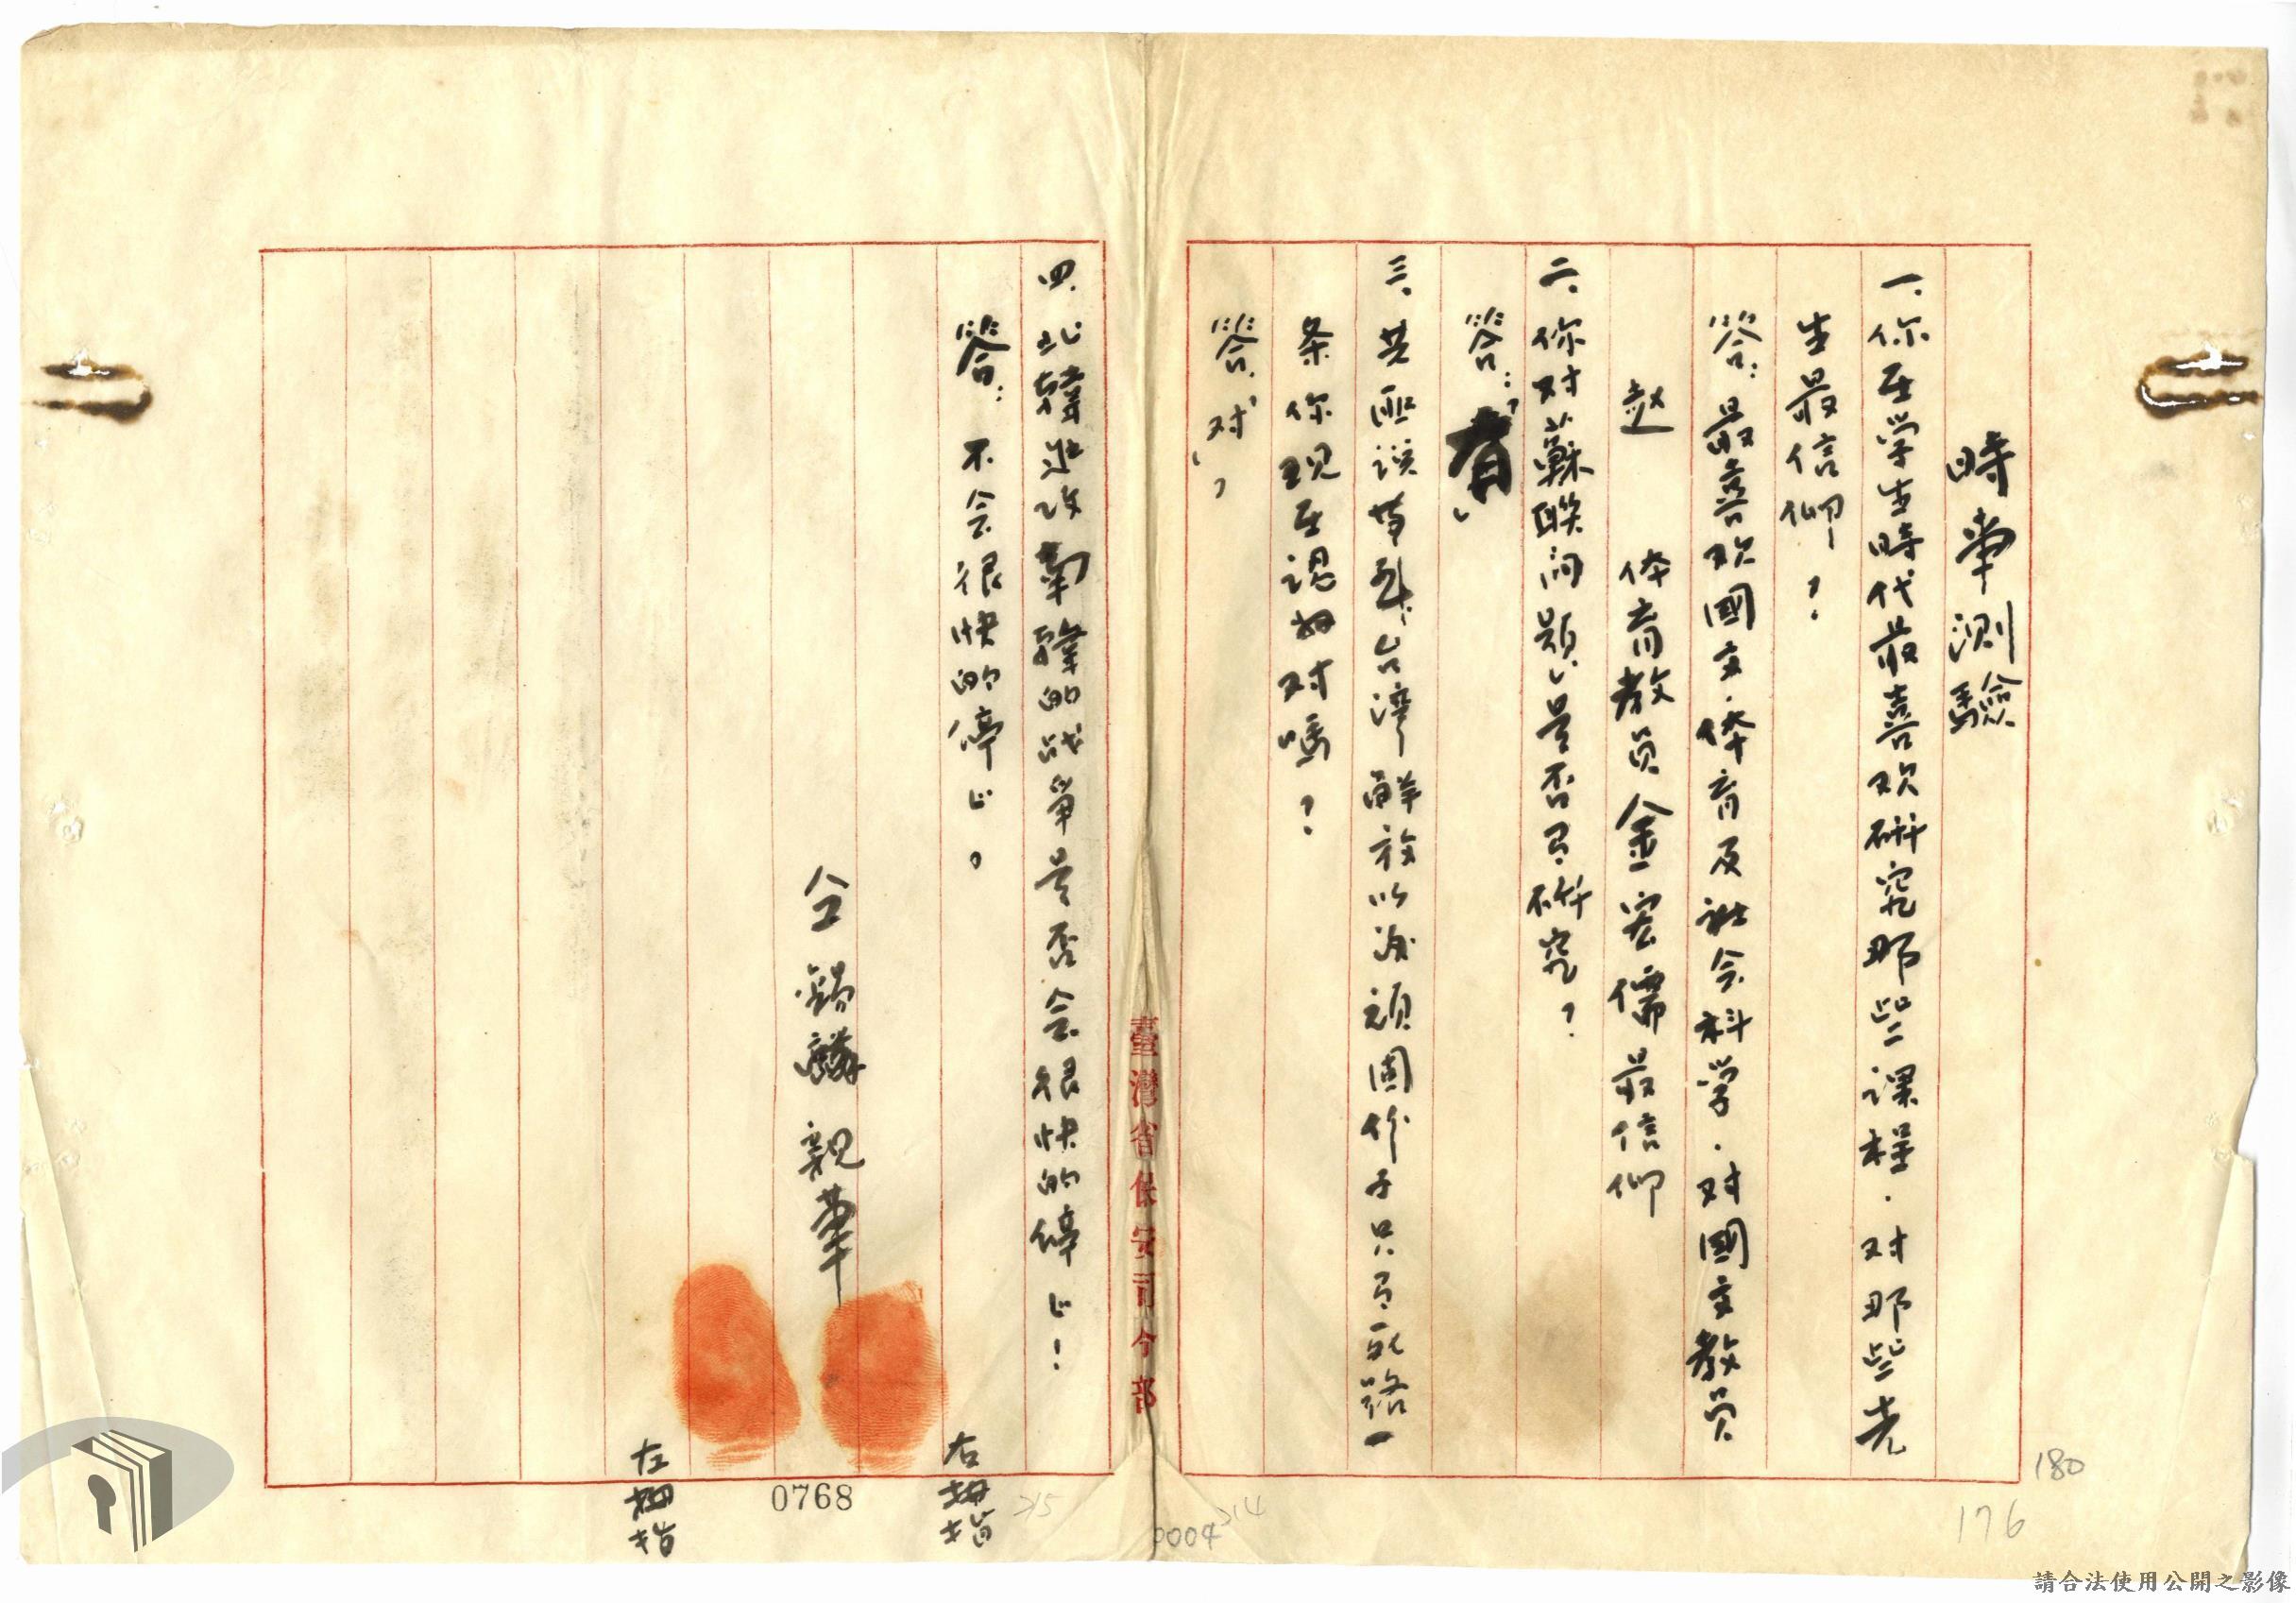 時事測驗
一、你在学生時代最喜欢研究那些課程．对那些先
生最信仰？
答：最喜欢國文．体育及社会科学．对國文教員
赵　体育教員金宏儒最信仰
二、你对蘇联问题、是否有研究？
答：「有」
三、共匪説苗子台湾解放以後頑固份子只有死路一
条你現在認為对嗎？
答．「对」，
四、北韓進攻南韓的战爭是否会很快的停止！
答：不会很快的停止。
仝錫麟親筆
右拇指
左拇指
臺灣省保安司令部
0768
215
214
0004
180
176
請合法使用公開之影像